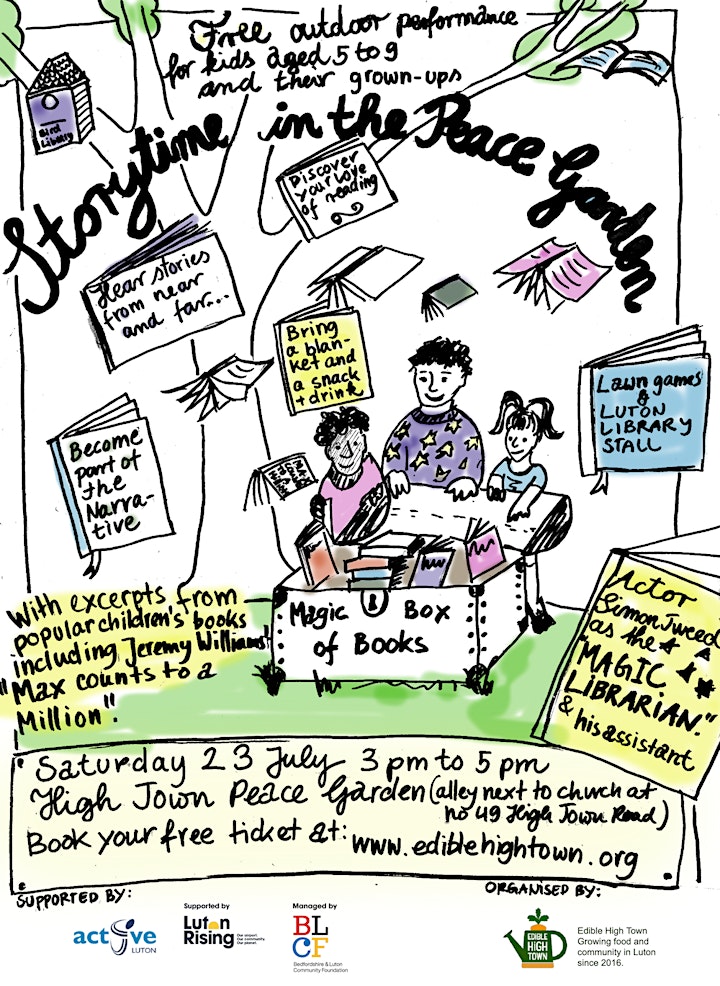 Free outdoor performance
for kids aged 5 to 9
and their grown-ups
Bird
Library
Storytime in the Peace Garden
Discover
your love
of reading
Hear stories
from near
and far...
Bring
a blan-
ket and
a snack
+ drink
Lawn games
&
LUTON
LIBRARY
STALL
Become
part of
the
Narra-
tive
Magic Box
of Books
With excerpts from
popular children's books
including Jeremy Williams'
"Max counts to a
Million".
Actor
Simon Tweed
as the
"MAGIC
LIBRARIAN."
& his assistant
Saturday 23 July 3 pm to 5 pm
High Town Peace Garden (alley next to church at
no 49 High Town Road)
Book your free ticket at: www.ediblehightown.org
SUPPORTED BY:
ORGANISED BY:
active
LUTON
Supported by
Luton
Rising
Our airport.
Our community.
Our planet.
Managed by
BL
CF
Bedfordshire & Luton
Community Foundation
EDIBLE
HIGH
TOWN
Edible High Town
Growing food and
community in Luton
since 2016.